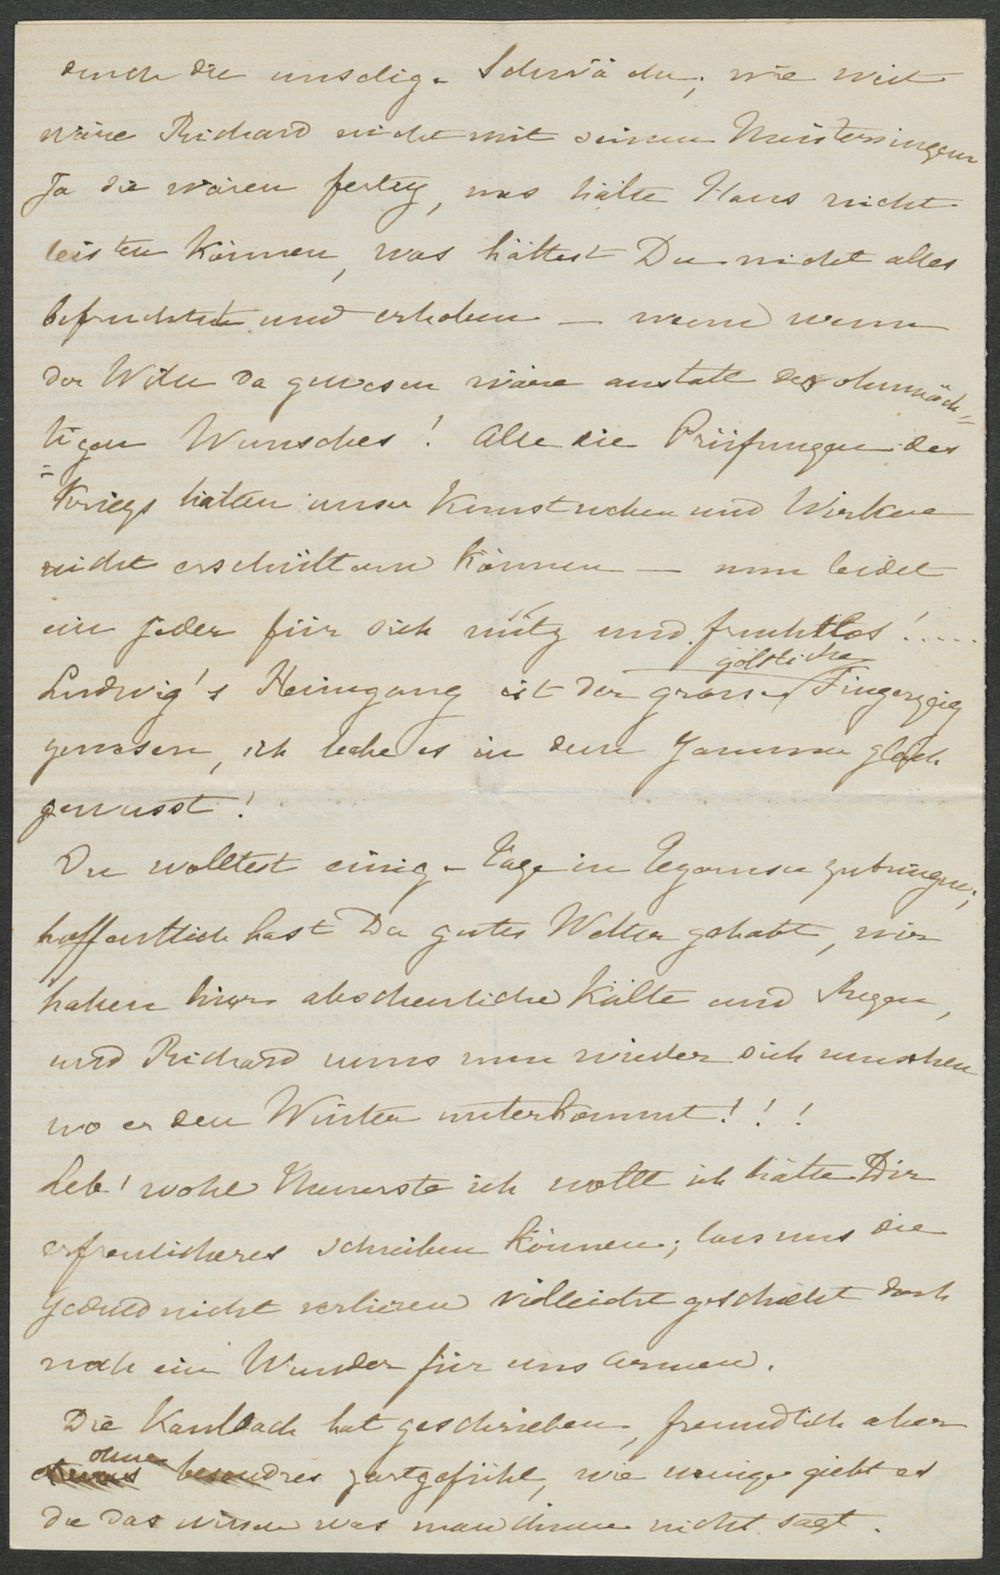 durch die unselige Schwäche; wie weit
wäre Richard nicht mit seinen Meistersingern
Ja sie wären fertig, was hätte Hans nicht
leisten können, was hättest Du nicht alles
befruchtet und erhoben — wenn wenn
der Wille da gewesen wäre anstatt des ohnmäch=
=tigen Wunsches! Alle die Prüfungen des
Kriegs hätten unser Kunst und Wirken
nicht erschüttern können — nun leidet
ein jeder für sich und fruchtlos! .....
göttliche
Ludwig's Heimgang ist der grosse Fingerzeig
gewesen, ich habe es in dem Jammer gleich
gewusst!
Du wolltest einige Tage in Tegernsee zubringen;
hoffentlich hast Du gutes Wetter gehabt, wir
haben hier abscheuliche Kälte und Regen,
und Richard muss nun wieder sich umsehen
wo er den Winter unterkommt!!!
Leb' wohl Theuerste ich wollt ich hätte Dir
erfreulicheres schreiben können; lass uns die
Geduld nicht verlieren vielleicht geschieht doch
noch ein Wunder für uns Armen.
Die Kaulbach hat geschrieben, freundlich aber
ohne
besondres zartgefühl, wie wenige giebt es
die das wissen was man ihnen nicht sagt.